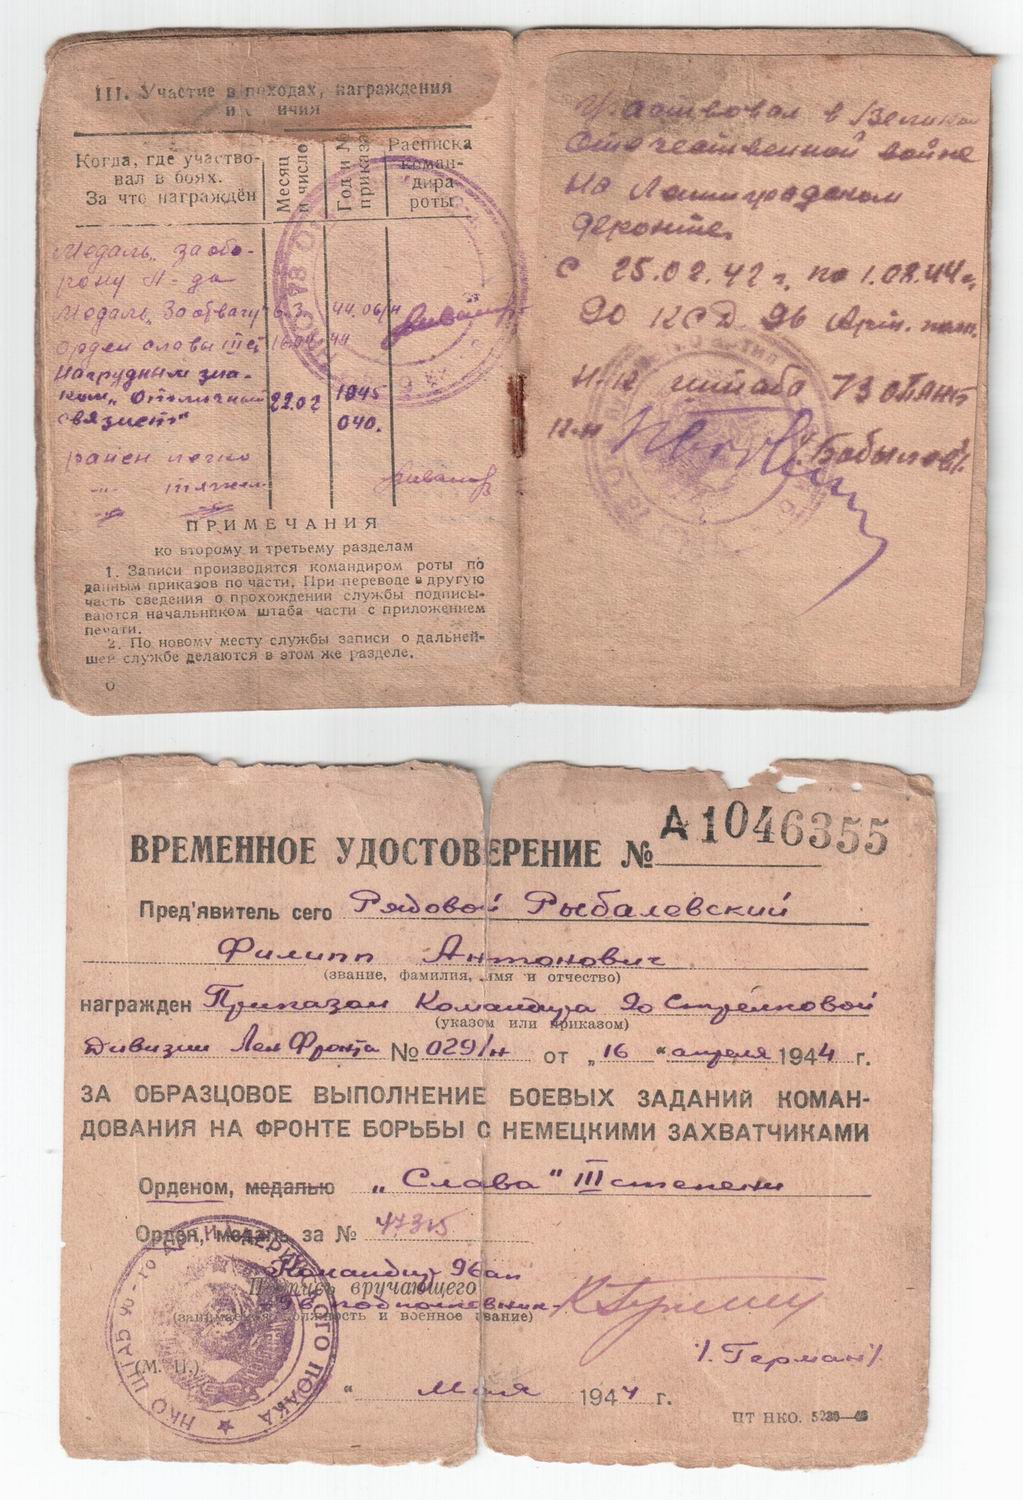 III. Участие в походах, награждения
и ичия
Когда, где участво-
вал в боях.
За что награждён
Месяц
и число
Год и №
приказа
Расписка
коман-
дира
роты
Медаль „За обо-
рону Л-да
Медаль „За отвагу 6.3 44. 06/н
Орден славы III ст 16.04 44
Нагрудным зна-
ком „Отличный 22.02 1945
связист" 040.
ранен легко
—"— тяжел
ПРИМЕЧАНИЯ
ко второму и третьему разделам
1. Записи производятся командиром роты по
данным приказов по части. При переводе в другую
часть сведения о прохождении службы подписы-
ваются начальником штаба части с приложением
печати.
2. По новому месту службы записи о дальней-
шей службе делаются в этом же разделе.
Участвовал в Великой
Отечественной войне
на Ленинградском
фронте.
с 25.02.42 г. по 1.08.44 г.
90 КСД 96 Арт. полк.
Н-к штаба 73
к-н /Бобылев/
ВРЕМЕННОЕ УДОСТОВЕРЕНИЕ № А 1046355
Пред'явитель сего Рядовой Рыбалевский
Филипп Антонович
(звание, фамилия, имя и отчество)
награжден Приказом Командира 90 Стрелковой
(указом или приказом)
Дивизии Лен Фронта № 029/н от „16" апреля 1944 г.
ЗА ОБРАЗЦОВОЕ ВЫПОЛНЕНИЕ БОЕВЫХ ЗАДАНИЙ КОМАН-
ДОВАНИЯ НА ФРОНТЕ БОРЬБЫ С НЕМЕЦКИМИ ЗАХВАТЧИКАМИ
Орденом, медалью „Слава" III степени
Орден, медаль за № 47315
Командир 96 ап
Подпись вручающего
гв подполковник
(занимаемая должность и военное звание)
/Герман/
(М. П.)
" мая 1944 г.
НКО ШТАБ 96-го АРТИЛЛЕРИЙСКОГО ПОЛКА
ПТ НКО. 5236—43